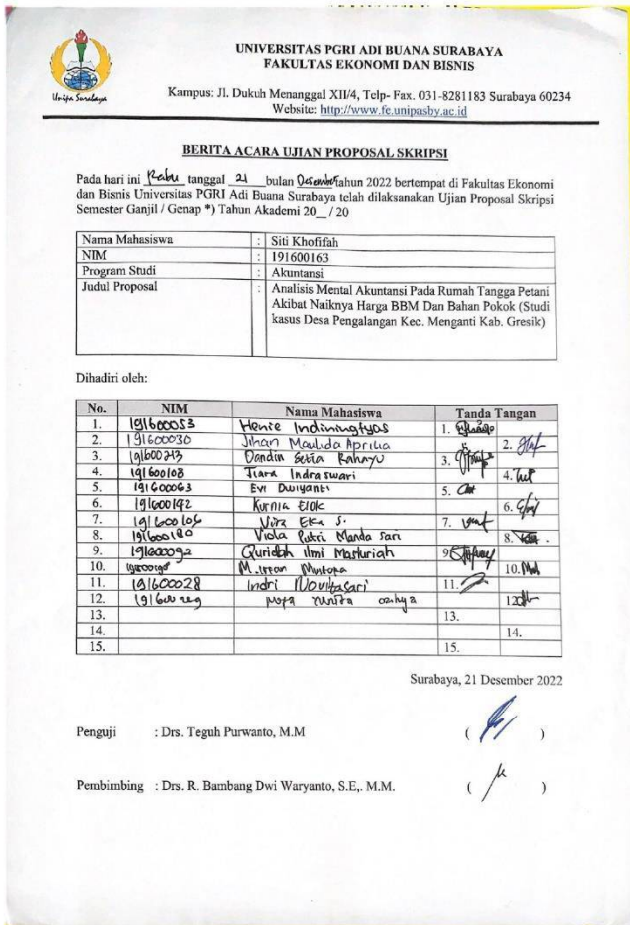 UNIVERSITAS PGRI ADI BUANA SURABAYA
FAKULTAS EKONOMI DAN BISNIS
Unipa Surabaya
Kampus: Jl. Dukuh Menanggal XII/4, Telp- Fax. 031-8281183 Surabaya 60234
Website: http://www.fe.unipasby.ac.id
BERITA ACARA UJIAN PROPOSAL SKRIPSI
Pada hari ini Rabu tanggal 21 bulan Desember tahun 2022 bertempat di Fakultas Ekonomi
dan Bisnis Universitas PGRI Adi Buana Surabaya telah dilaksanakan Ujian Proposal Skripsi
Semester Ganjil / Genap *) Tahun Akademi 20__/ 20
Nama Mahasiswa : Siti Khofifah
NIM : 191600163
Program Studi : Akuntansi
Judul Proposal : Analisis Mental Akuntansi Pada Rumah Tangga Petani
Akibat Naiknya Harga BBM Dan Bahan Pokok (Studi
kasus Desa Pengalangan Kec. Menganti Kab. Gresik)
Dihadiri oleh:
No. NIM Nama Mahasiswa Tanda Tangan
1. 191600053 Henie Indiningtyas 1.
2. 191600030 Jihan Maulida Aprilia 2.
3. 191600213 Dandin Setia Rahayu 3.
4. 191600108 Tiara Indraswari 4.
5. 191600063 Evi Dwiyanti 5.
6. 191600142 Kurnia Elok 6.
7. 191600106 Vira Eka S. 7.
8. 191600180 Viola Putri Manda Sari 8.
9. 191600092 Quridah Ilmi Masluriah 9.
10. M. Irfan Mustopa 10.
11. 191600028 Indri Novitasari 11.
12. 12.
13. 13.
14. 14.
15. 15.
Surabaya, 21 Desember 2022
Penguji : Drs. Teguh Purwanto, M.M ( )
Pembimbing : Drs. R. Bambang Dwi Waryanto, S.E,. M.M. ( )